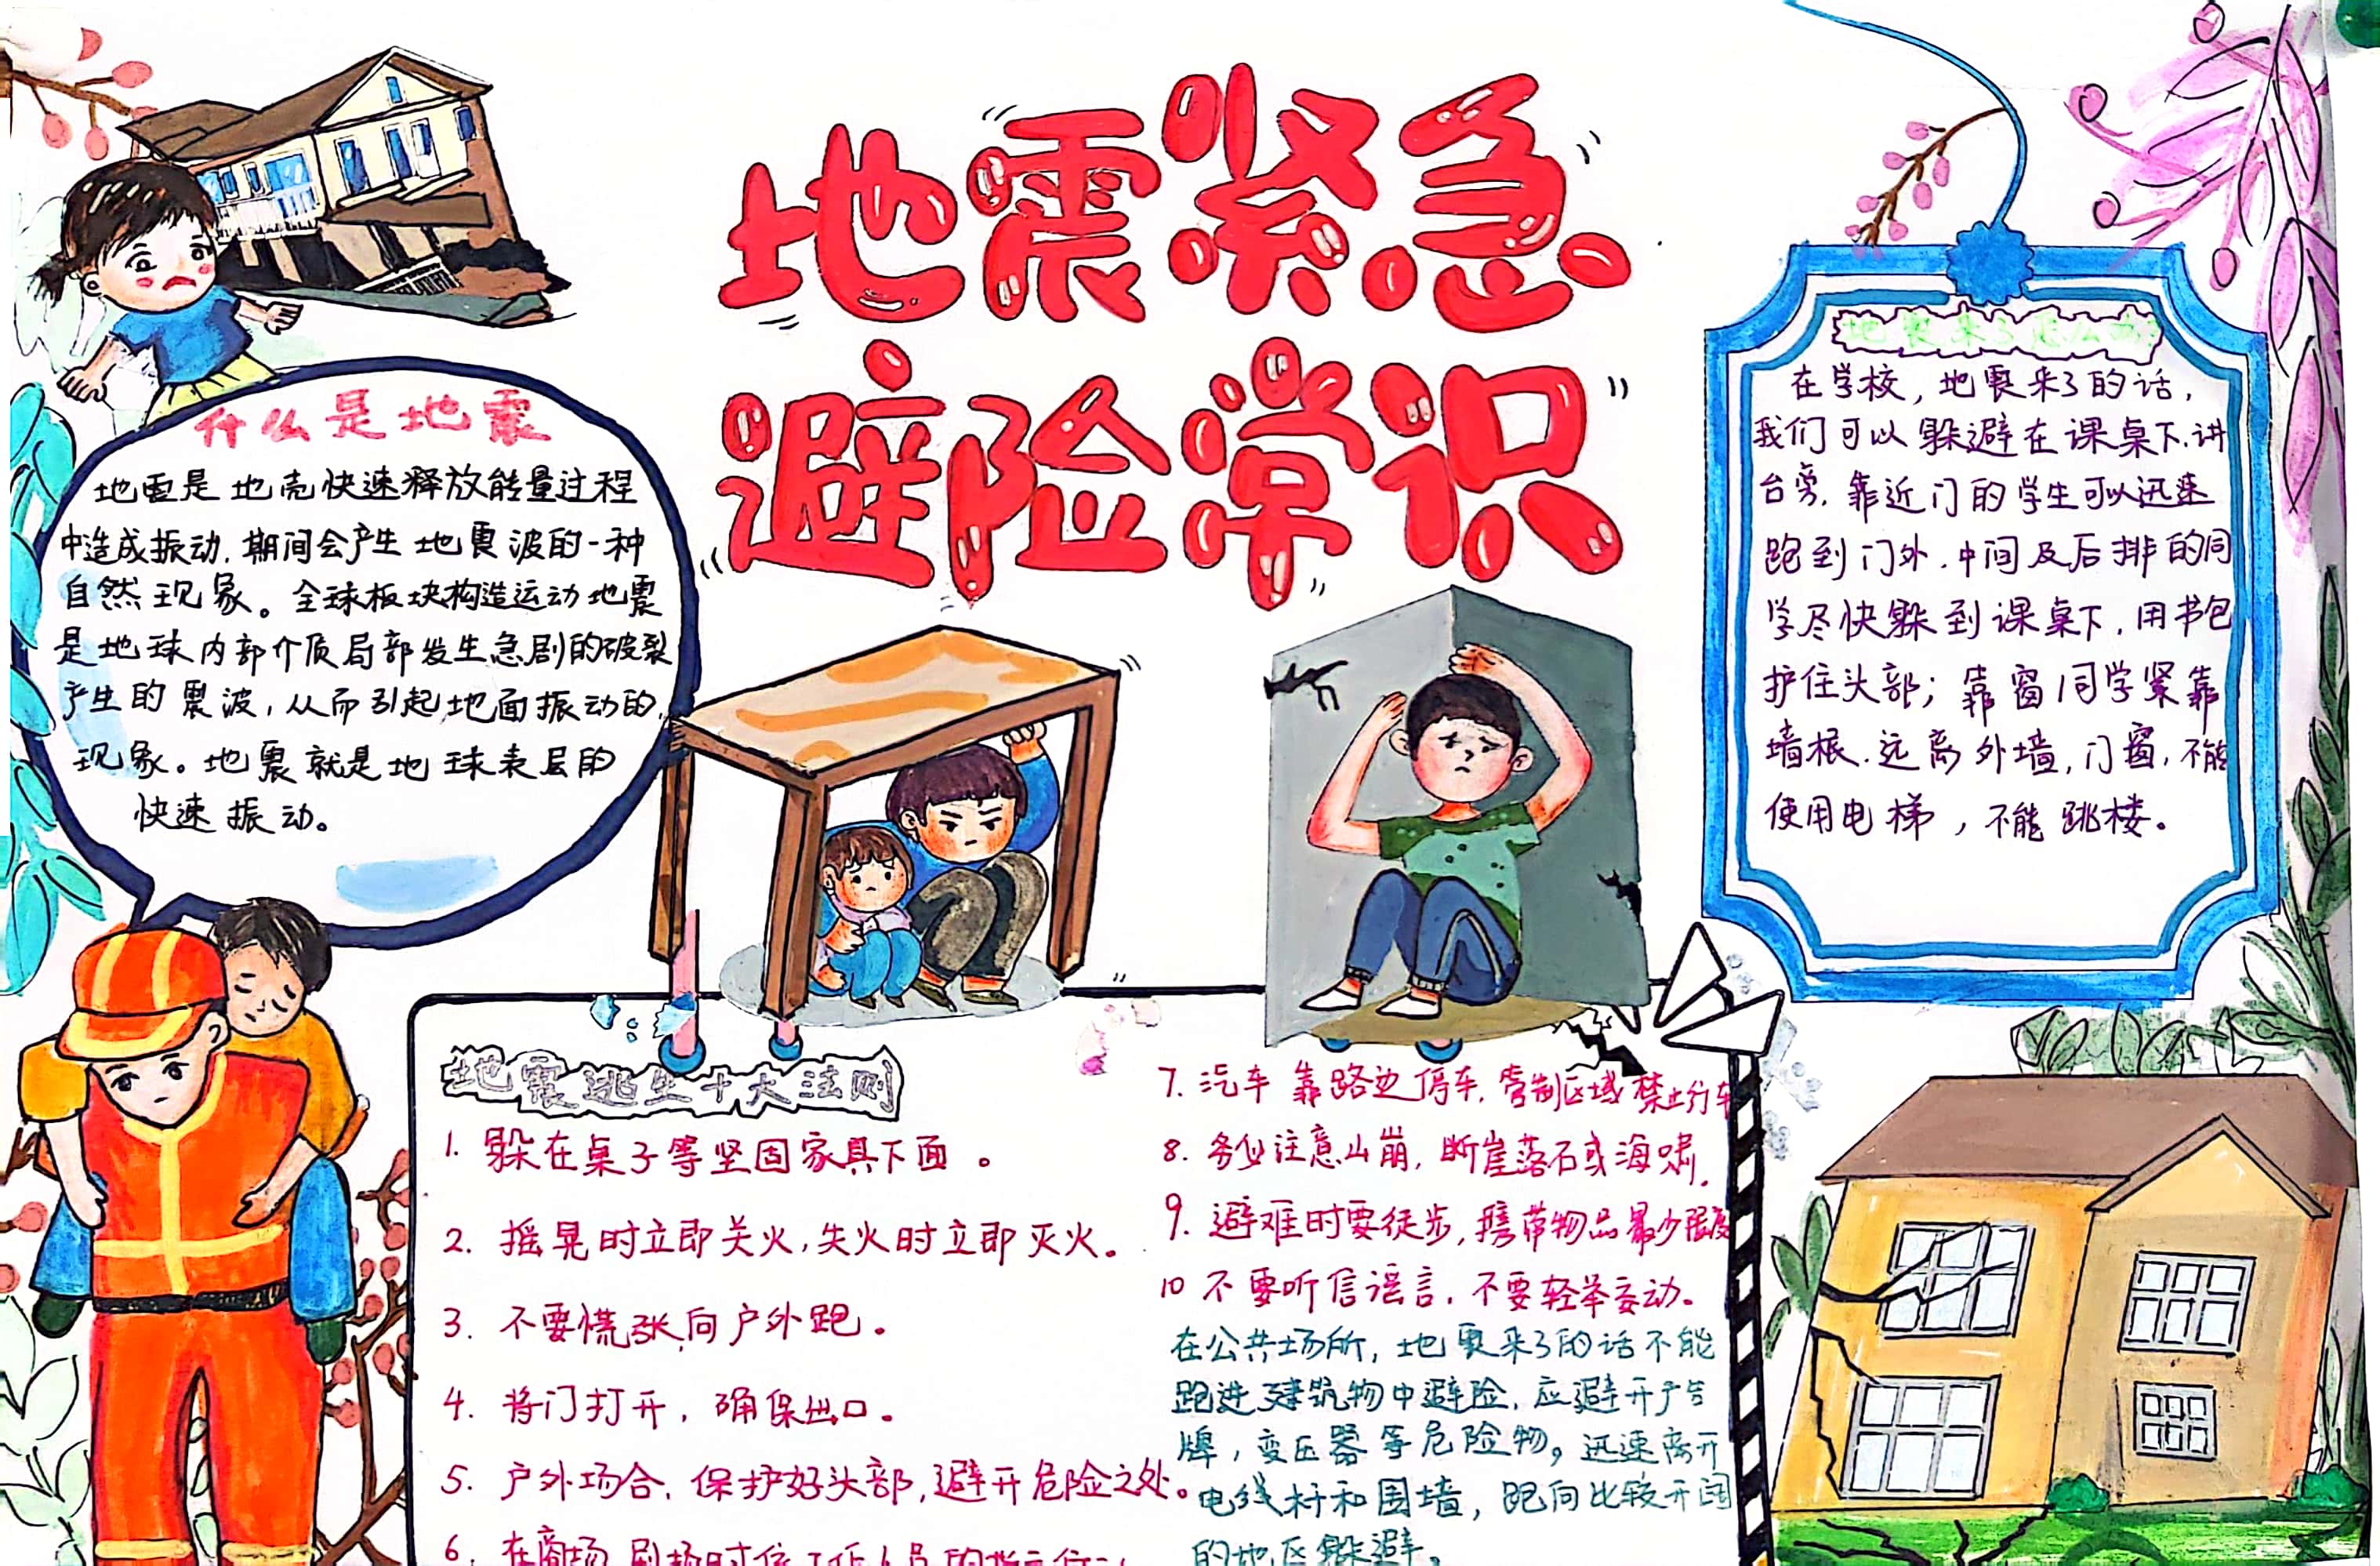 地震紧急
避险常识
什么是地震
地震是地壳快速释放能量过程
中造成振动,期间会产生地震波的一种
自然现象。全球板块构造运动地震
是地球内部介质局部发生急剧的破裂
产生的震波,从而引起地面振动的
现象。地震就是地球表层的
快速振动。
地震来了怎么办
在学校,地震来了的话,
我们可以躲避在课桌下、讲
台旁,靠近门的学生可以迅速
跑到门外,中间及后排的同
学尽快躲到课桌下,用书包
护住头部;靠窗同学紧靠
墙根,远离外墙,门窗,不能
使用电梯,不能跳楼。
地震逃生十大法则
1. 躲在桌子等坚固家具下面。
2. 摇晃时立即关火,失火时立即灭火。
3. 不要慌张向户外跑。
4. 将门打开,确保出口。
5. 户外场合,保护好头部,避开危险之处。
6. 在商场、剧场时依工作人员的指示行动
7. 汽车靠路边停车,管制区域禁止行车
8. 务必注意山崩,断崖落石或海啸.
9. 避难时要徒步,携带物品最少限度
10 不要听信谣言,不要轻举妄动。
在公共场所,地震来了的话不能
跑进建筑物中避险,应避开广告
牌,变压器等危险物。迅速离开
电线杆和围墙,跑向比较开阔
的地区躲避。